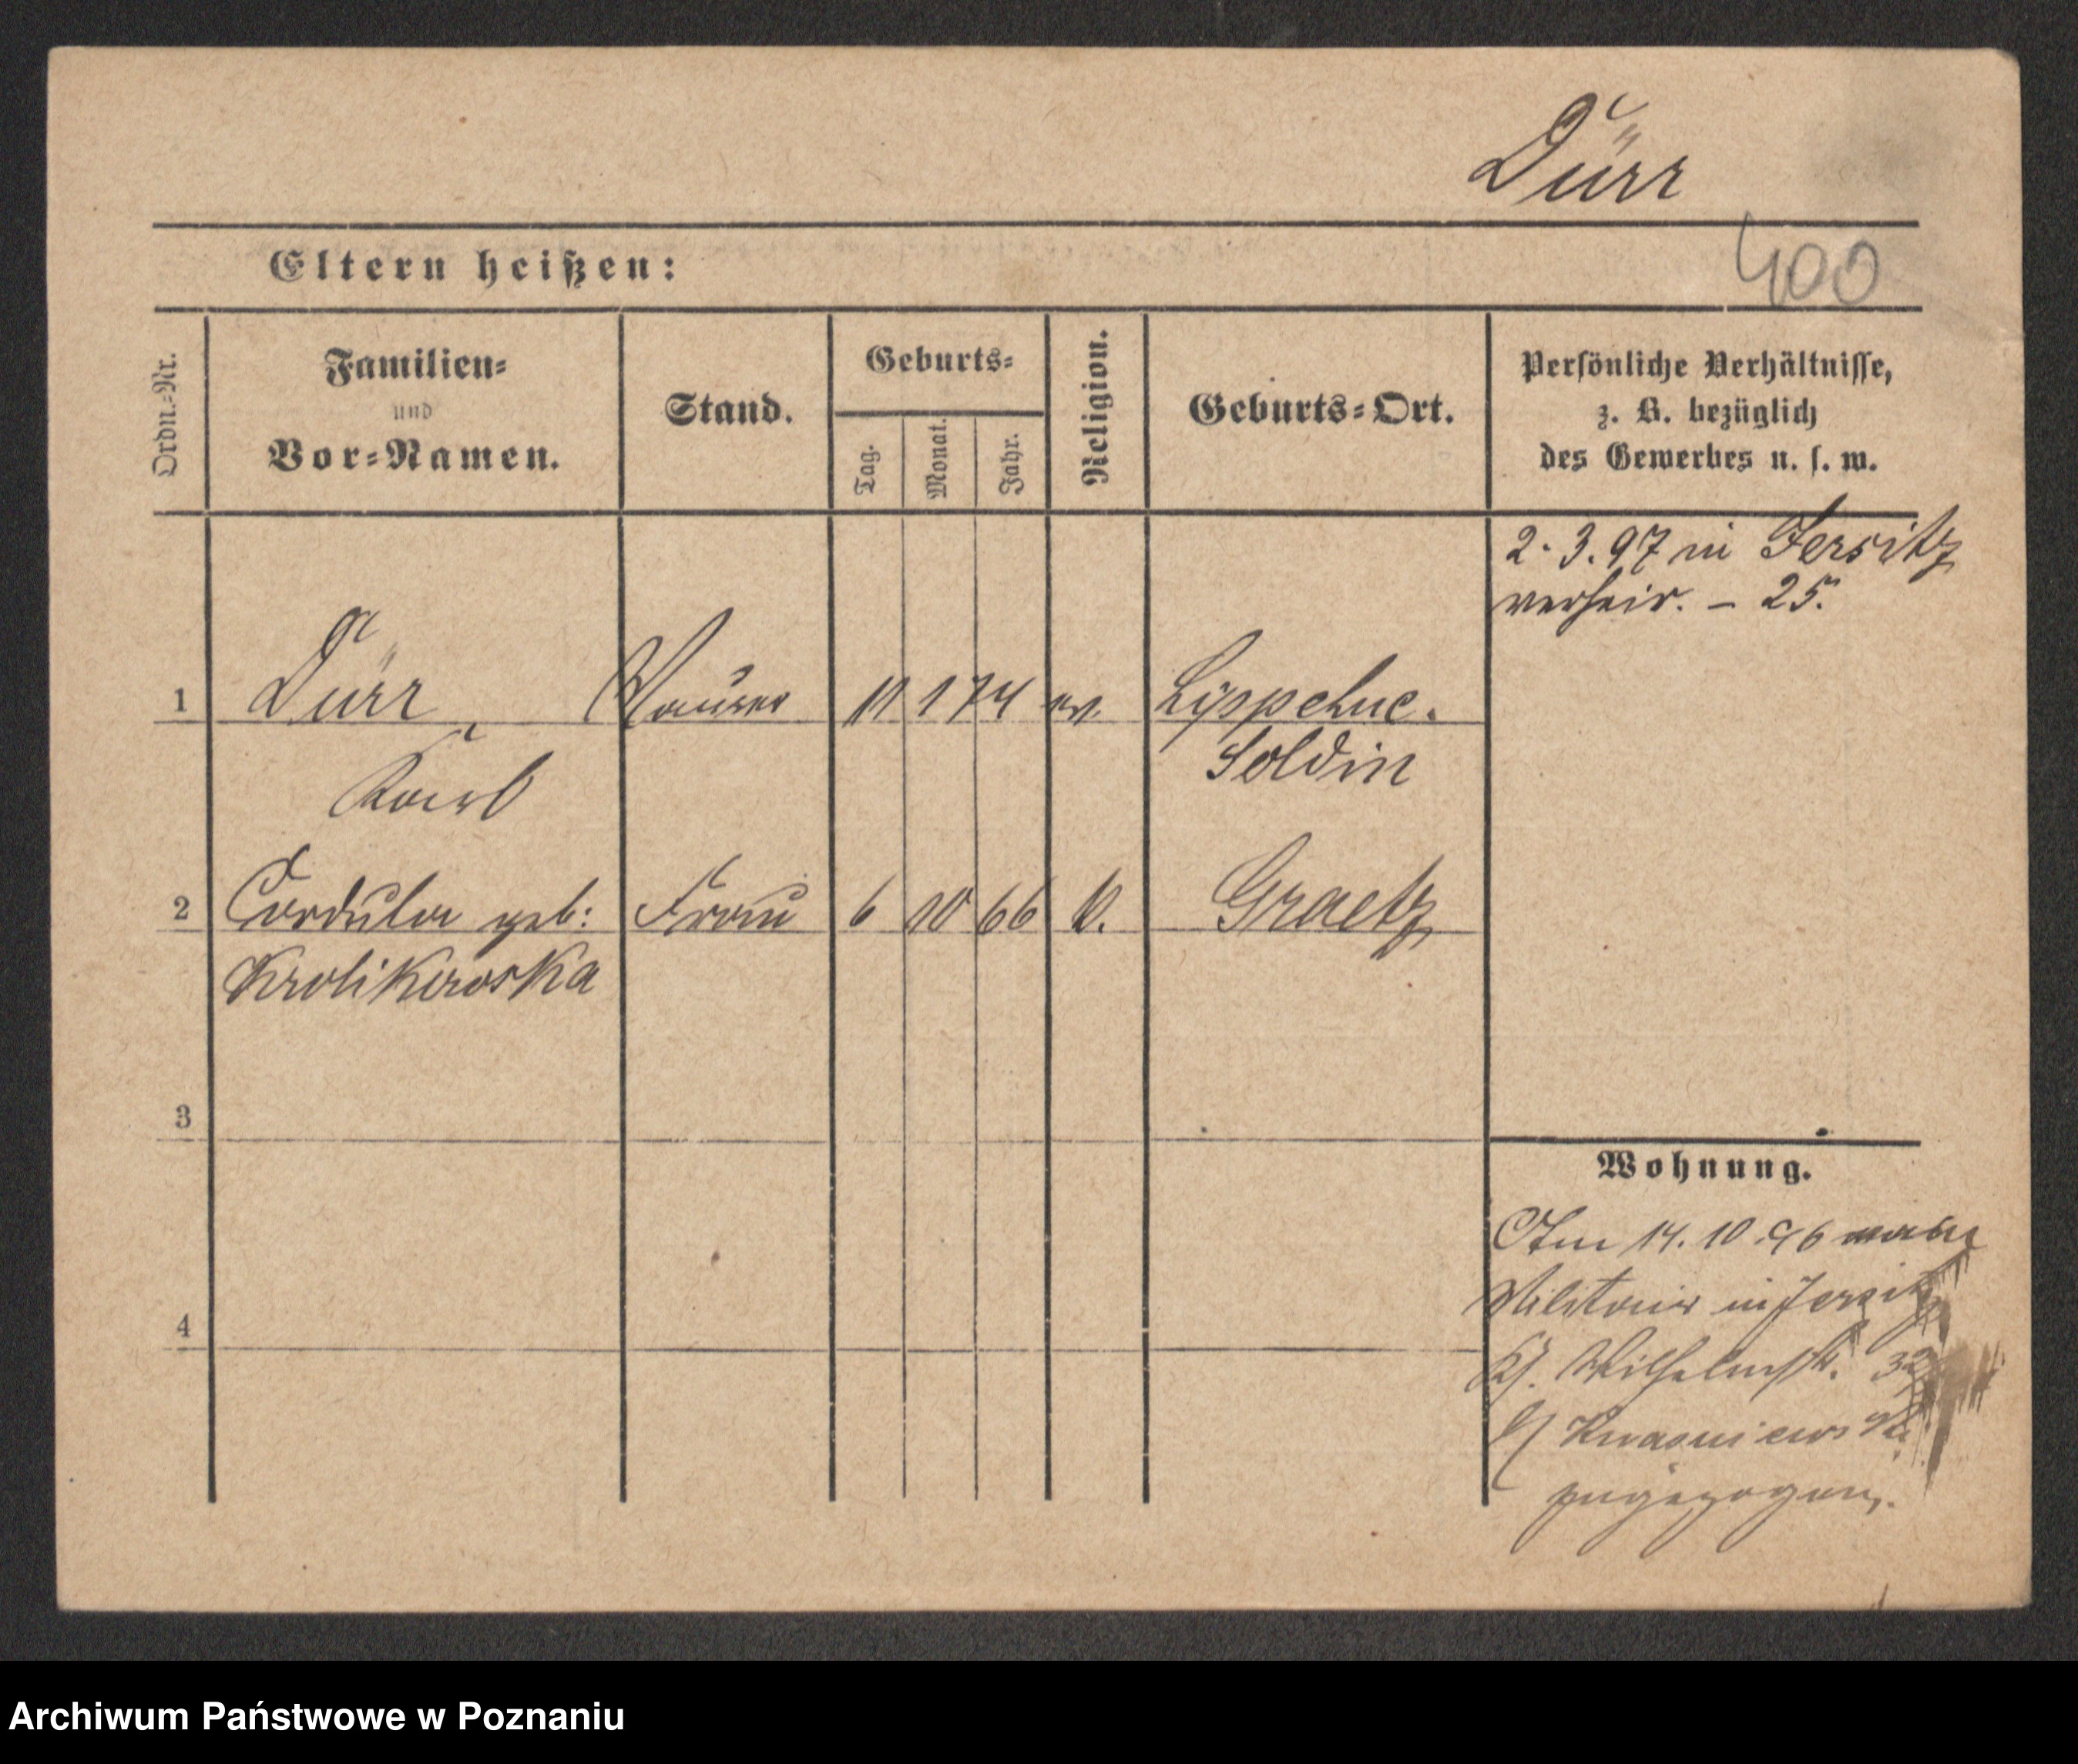 Dürr
Eltern heißen:
400
Ordn.-Nr.
Familien-
und
Vor-Namen.
Stand.
Geburts-
Tag.
Monat.
Jahr.
Religion.
Geburts-Ort.
Persönliche Verhältnisse,
z. B. bezüglich
des Gewerbes u. s. w.
2. 3. 97 in Jersitz
verheir. - 25.
1 Dürr, Maurer 11 1 74 ev. Lippehne.
Karl Soldin
2 Cordula geb: Frau 6 10 66 k. Graetz
Krolikowska
3
4
Wohnung.
Am 14. 10. 96
Militair in Jersitz
Wilhelmstr. 32
b/ Kwasniewski
zugezogen.
Archiwum Państwowe w Poznaniu